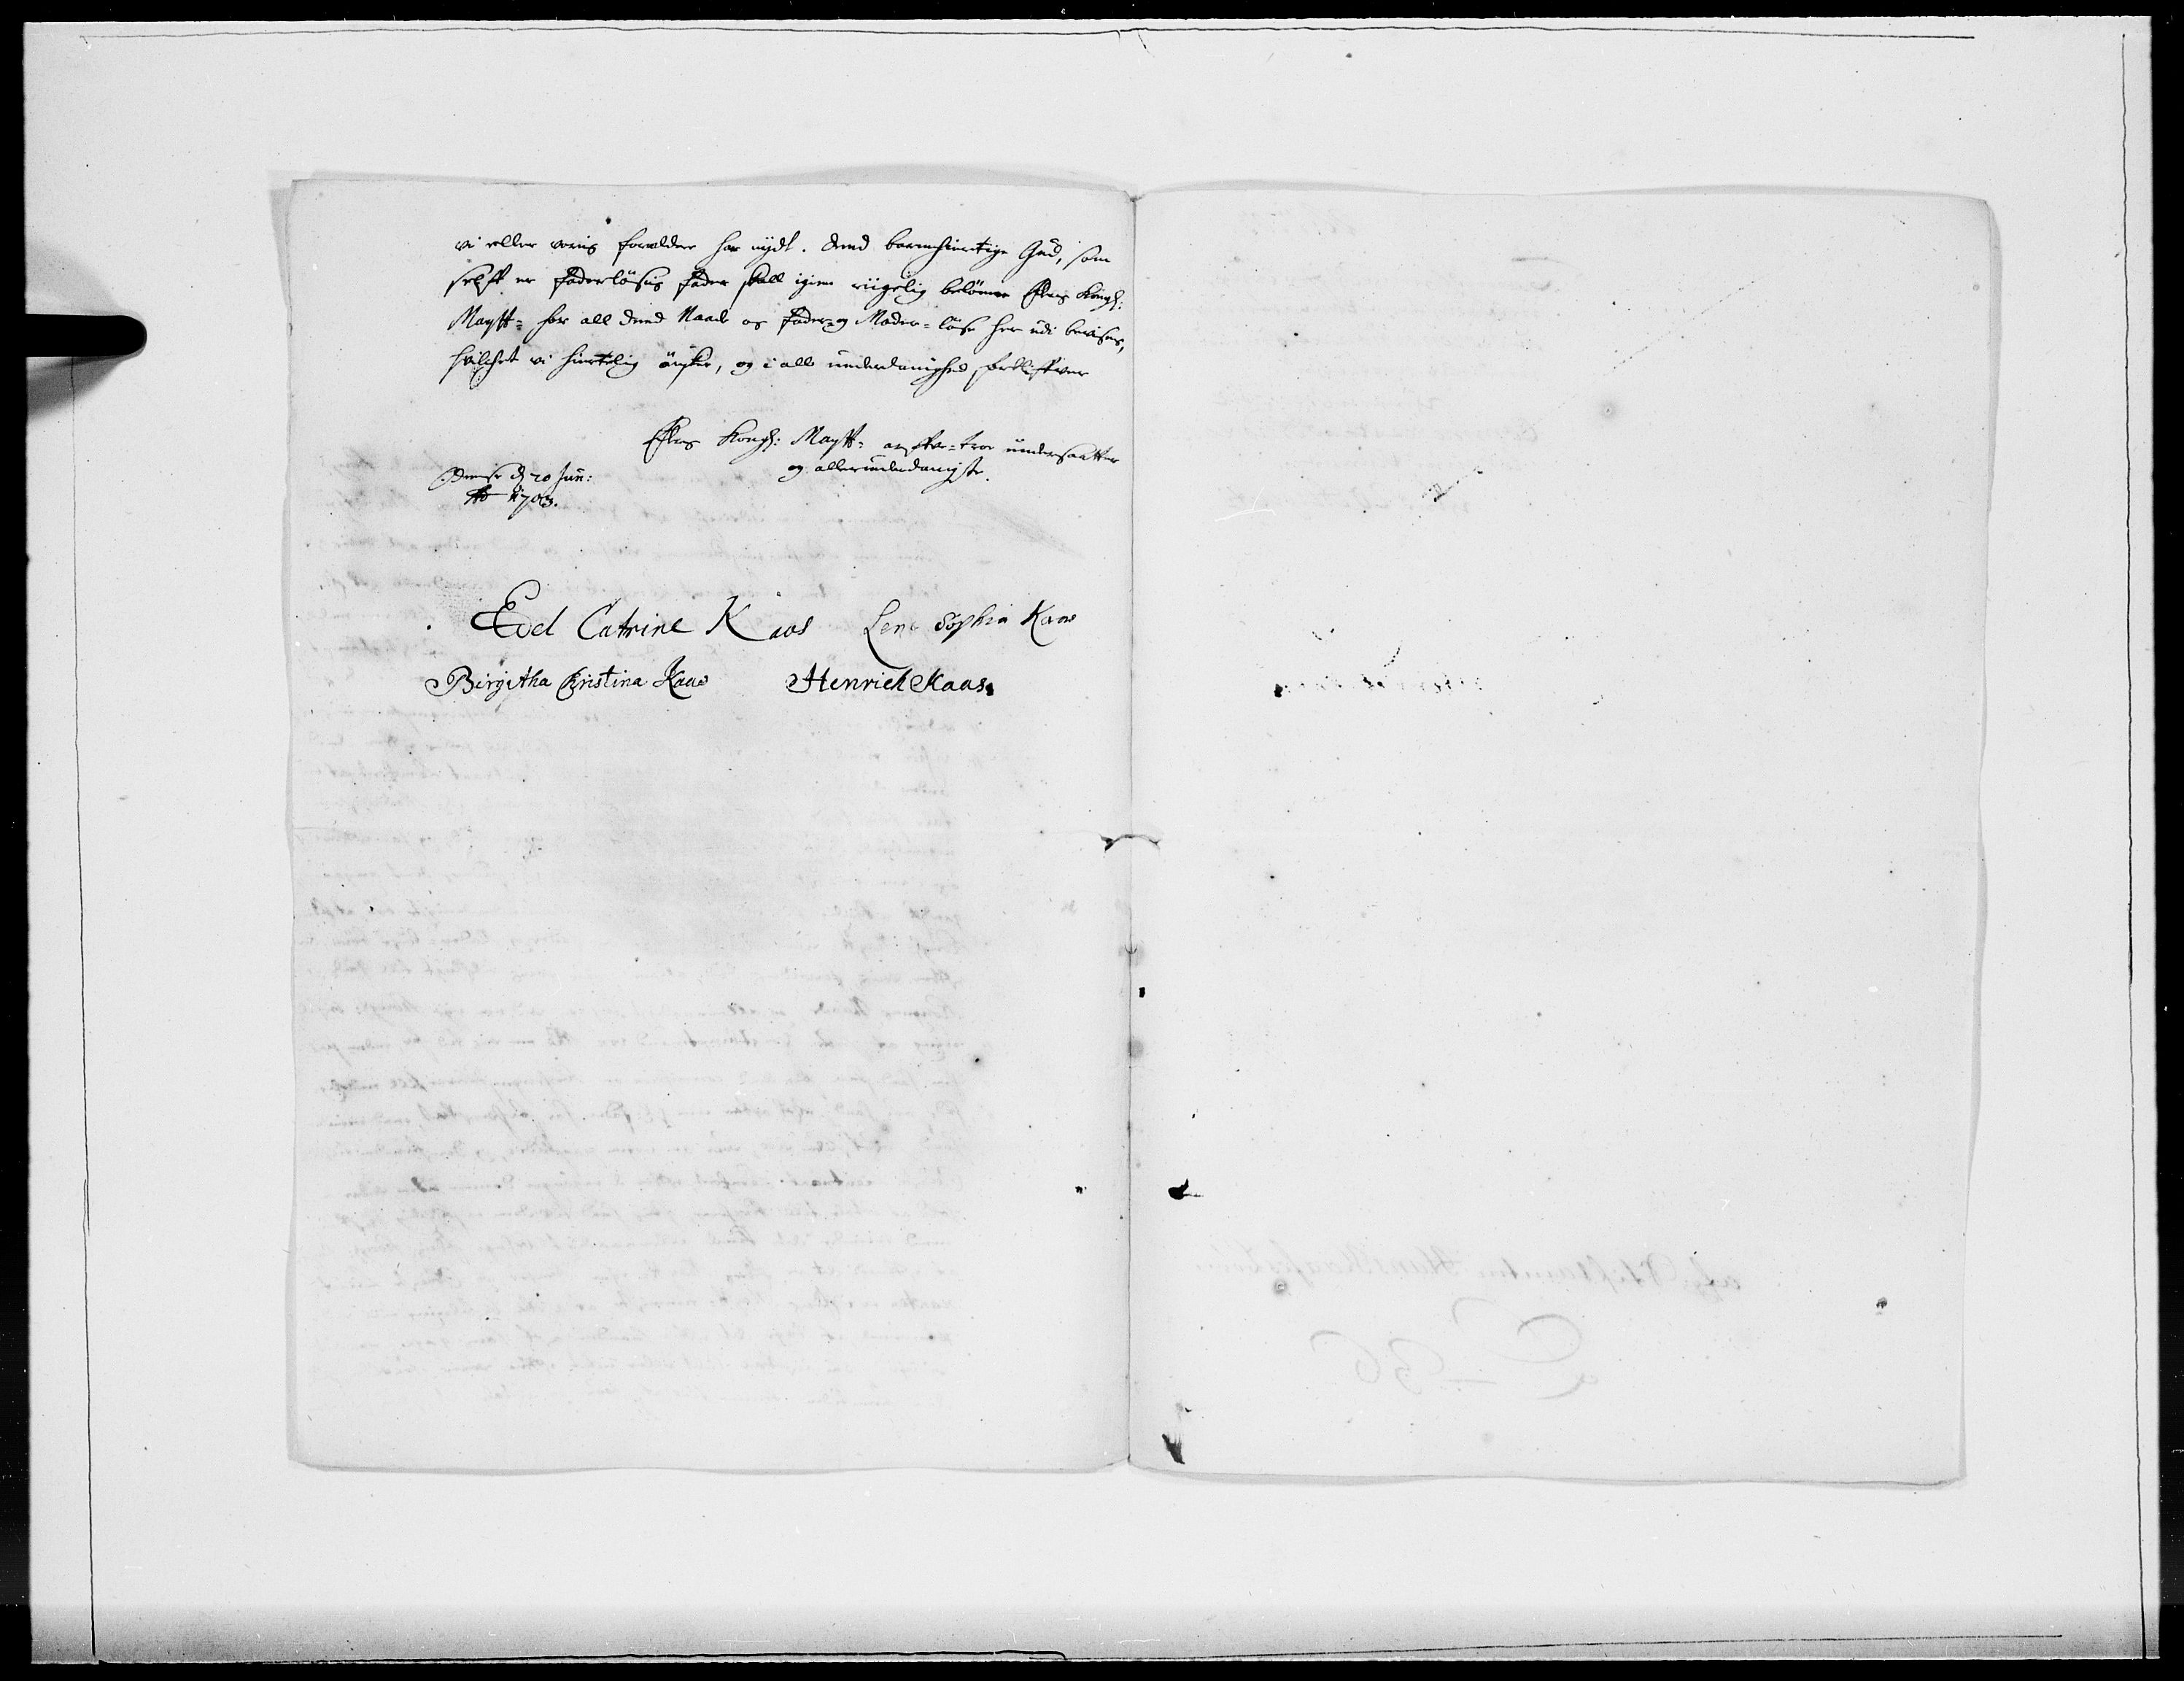 vi eller voris forældre har nydt. Dend barmhiertige Gud, som
selff er Faderløsis Fader skall igien rigelig belønne Eders Kongl:
Maytt= for all dend Naade os Fader= og Moder=løse her udi bevises,
hvilchet vi hiertelig ønsker, og i all underdanighed forbliffver
Eders Kongl: Maytt= arffve=troe undersaatter
og allerunderdanigste.
Odense d 20 Jun:
Ao 1703.
Edel Catrine Kaas Lene Sophia Kaas
Birgitha Christina Kaas Henrich Kaas